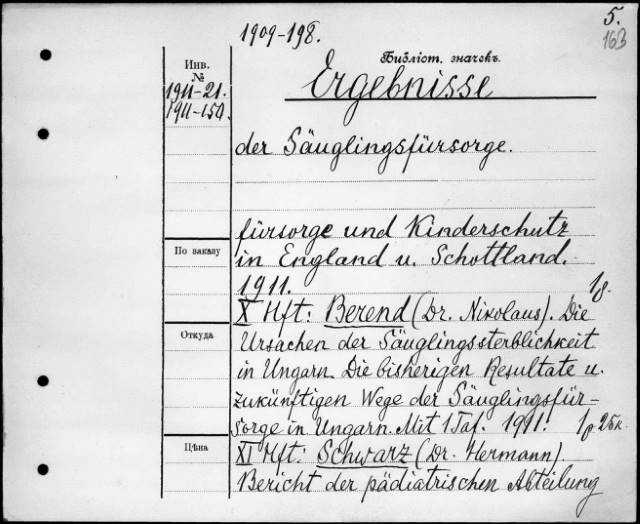 5.
163
1909-198.
Библіот. значекъ.
Инв.
№
1911-21.
1911-150.
Ergebnisse
der Säuglingsfürsorge.
fürsorge und Kinderschutz
По заказу
in England u. Schottland.
1911. 1р.
X Hft: Berend (Dr. Nikolaus). Die
Откуда
Ursachen der Säuglingssterblichkeit
in Ungarn. Die bisherigen Resultate u.
zukünftigen Wege der Säuglingsfür-
sorge in Ungarn. Mit 1 Taf. 1911. 1р.25к.
Цѣна
XI Hft: Schwarz (Dr. Hermann).
Bericht der pädiatrischen Abteilung